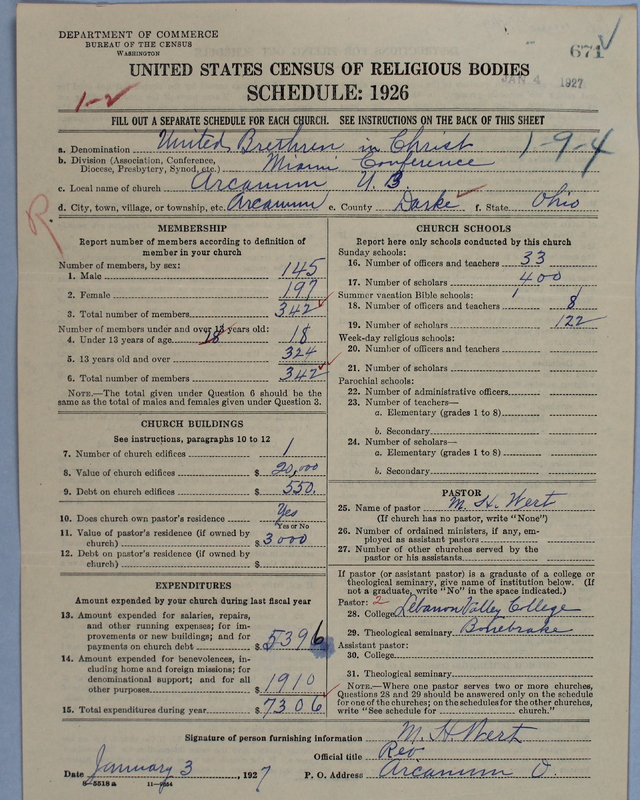 DEPARTMENT OF COMMERCE
BUREAU OF THE CENSUS
WASHINGTON
671
JAN 4 1927
UNITED STATES CENSUS OF RELIGIOUS BODIES
SCHEDULE: 1926
1-2
FILL OUT A SEPARATE SCHEDULE FOR EACH CHURCH. SEE INSTRUCTIONS ON THE BACK OF THIS SHEET
a. Denomination United Brethren in Christ 1-9-4
b. Division (Association, Conference, Diocese, Presbytery, Synod, etc.) Miami Conference
c. Local name of church Arcanum U.B
d. City, town, village, or township, etc. Arcanum e. County Darke f. State Ohio
R.
MEMBERSHIP
Report number of members according to definition of
member in your church
Number of members, by sex:
1. Male 145
2. Female 197
3. Total number of members 342
Number of members under and over 13 years old:
4. Under 13 years of age 18 18
5. 13 years old and over 324
6. Total number of members 342
NOTE.—The total given under Question 6 should be the
same as the total of males and females given under Question 3.
CHURCH BUILDINGS
See instructions, paragraphs 10 to 12
7. Number of church edifices 1
8. Value of church edifices $20,000
9. Debt on church edifices $550.
10. Does church own pastor's residence Yes
Yes or No
11. Value of pastor's residence (if owned by
church) $3000
12. Debt on pastor's residence (if owned by
church) $
EXPENDITURES
Amount expended by your church during last fiscal year
13. Amount expended for salaries, repairs,
and other running expenses; for im-
provements or new buildings; and for
payments on church debt $5396
14. Amount expended for benevolences, in-
cluding home and foreign missions; for
denominational support; and for all
other purposes $1910
15. Total expenditures during year $7306
CHURCH SCHOOLS
Report here only schools conducted by this church
Sunday schools:
16. Number of officers and teachers 33
17. Number of scholars 400
Summer vacation Bible schools:
18. Number of officers and teachers 8
19. Number of scholars 122
Week-day religious schools:
20. Number of officers and teachers
21. Number of scholars
Parochial schools:
22. Number of administrative officers
23. Number of teachers—
a. Elementary (grades 1 to 8)
b. Secondary
24. Number of scholars—
a. Elementary (grades 1 to 8)
b. Secondary
PASTOR
25. Name of pastor M. H. Wert
(If church has no pastor, write "None")
26. Number of ordained ministers, if any, em-
ployed as assistant pastors
27. Number of other churches served by the
pastor or his assistants
If pastor (or assistant pastor) is a graduate of a college or
theological seminary, give name of institution below. (If
not a graduate, write "No" in the space indicated.)
Pastor: 2
28. College Lebanon Valley College
29. Theological seminary Bonebrake
Assistant pastor:
30. College
31. Theological seminary
NOTE.—Where one pastor serves two or more churches,
Questions 28 and 29 should be answered only on the schedule
for one of the churches; on the schedules for the other churches,
write "See schedule for church."
Signature of person furnishing information M. H. Wert
Official title Rev
Date January 3, 1927 P. O. Address Arcanum O.